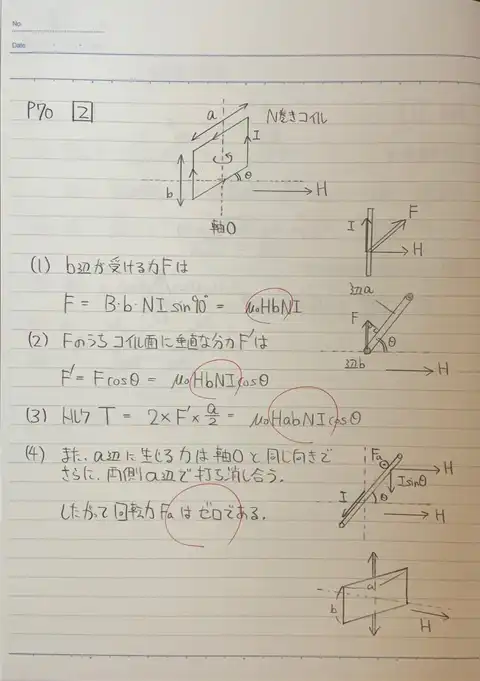 No.
Date
P70 2
N巻きコイル
a
I
b
θ
H
軸O
F
I
H
(1) b辺が受ける力Fは
F = B・b・NI sin90° = μ₀HbNI
辺a
F
θ
辺b
H
(2) Fのうちコイル面に垂直な分力F'は
F' = Fcosθ = μ₀HbNIcosθ
(3) トルク T = 2×F'×a/2 = μ₀HabNIcosθ
(4) また、a辺に生じる力は軸Oと同じ向きで
さらに、両側a辺で打ち消し合う。
したがって回転力Faはゼロである。
Fa
H
Isinθ
I
θ
H
a
b
H